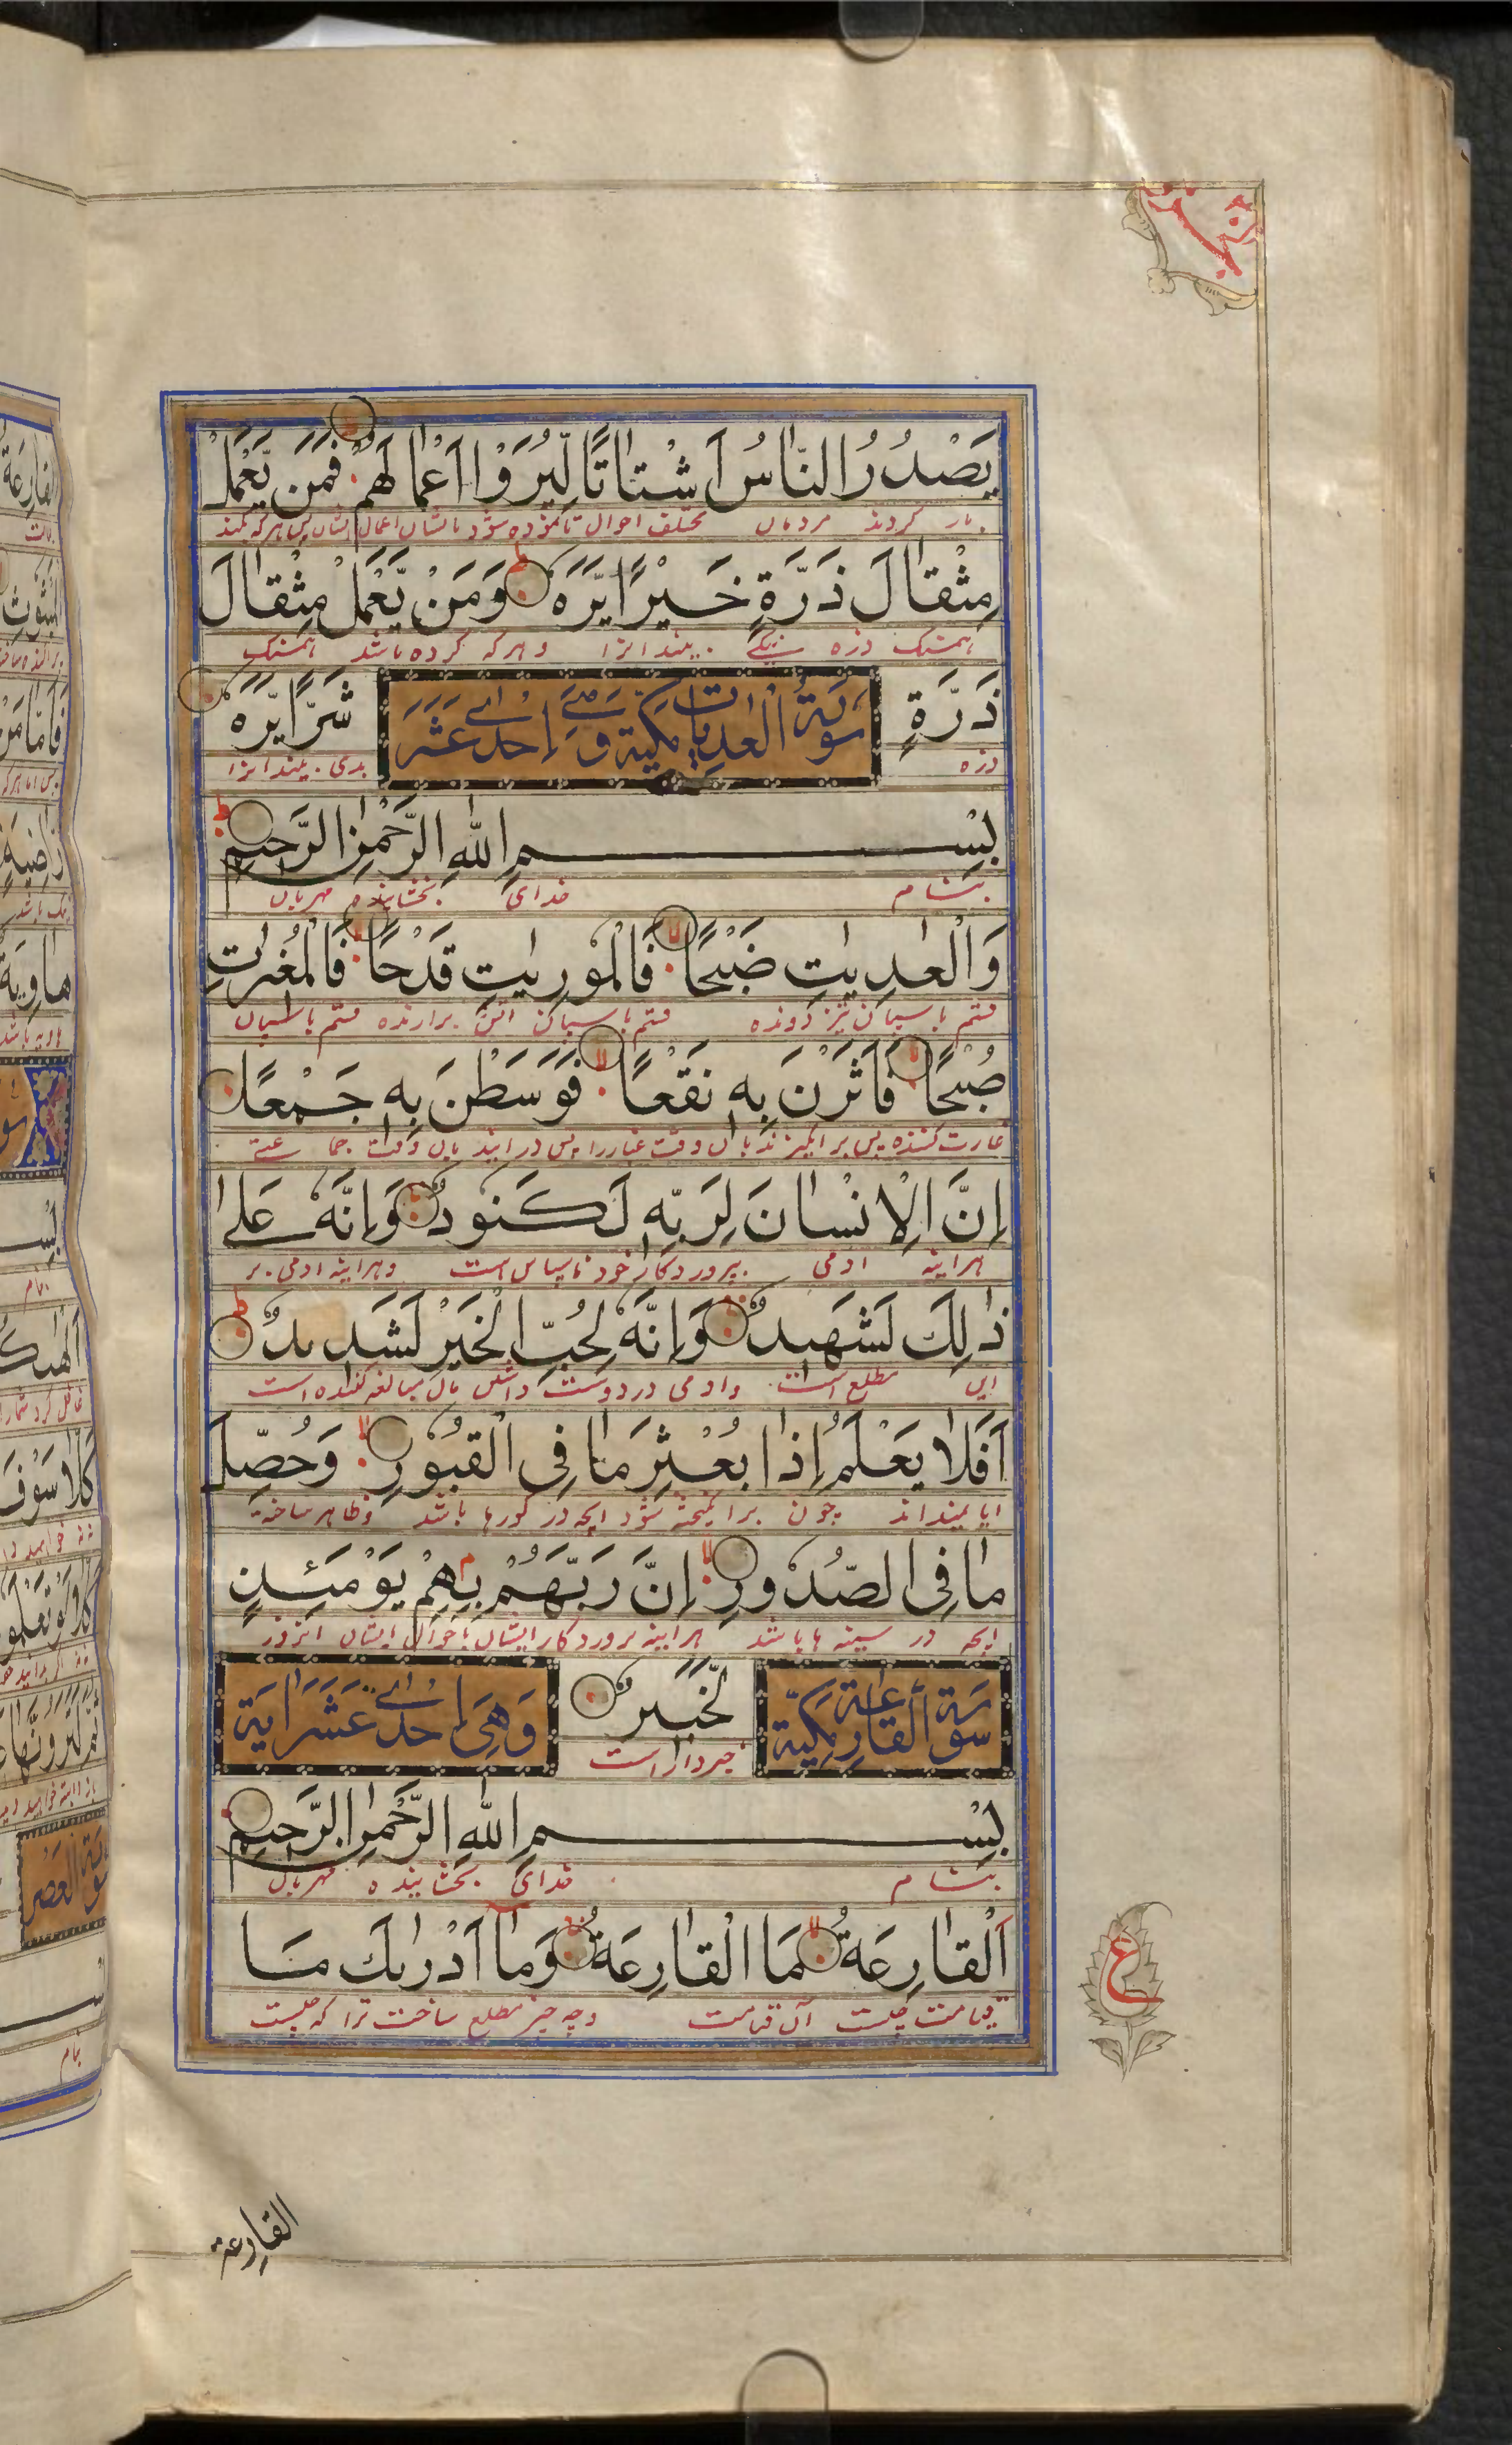 يَصْدُرُ النَّاسُ اَشْتَاتًا لِّيُرَوْا اَعْمَالَهُمْ فَمَن يَّعْمَلْ
باز گردند مردمان مختلف احوال تا نموده شود بایشان اعمال ایشان پس هر که کند
مِثْقَالَ ذَرَّةٍ خَيْرًا يَّرَهٗ وَمَنْ يَّعْمَلْ مِثْقَالَ
همسنک ذره نیکی بیند انرا و هر که کرده باشد همسنک
ذَرَّةٍ شَرًّا يَّرَهٗ
سورة العديات مكية وهي احدى عشر
ذره بدی بیند انرا
بِسْمِ اللهِ الرَّحْمٰنِ الرَّحِيْمِ
بنام خدای بخشاینده مهربان
وَالْعٰدِيٰتِ ضَبْحًا فَالْمُوْرِيٰتِ قَدْحًا فَالْمُغِيْرٰتِ
قسم باسپان تیز دونده قسم باسپان اتش برارنده قسم باسپان
صُبْحًا فَاَثَرْنَ بِهٖ نَقْعًا فَوَسَطْنَ بِهٖ جَمْعًا
غارت کننده پس برانگیزند بان وقت غبار را پس در ایند بان وقت جماعتی
اِنَّ الْاِنْسَانَ لِرَبِّهٖ لَكَنُوْدٌ وَاِنَّهٗ عَلٰى
هراینه ادمی پروردکار خود ناسپاس است و هراینه ادمی بر
ذٰلِكَ لَشَهِيْدٌ وَاِنَّهٗ لِحُبِّ الْخَيْرِ لَشَدِيْدٌ
این مطلع است و ادمی در دوست داشتن مال مبالغه کننده است
اَفَلَا يَعْلَمُ اِذَا بُعْثِرَ مَا فِى الْقُبُوْرِ وَحُصِّلَ
ایا نمیداند چون برانکیخته شود انچه در کورها باشد و ظاهر ساخته
مَا فِى الصُّدُوْرِ اِنَّ رَبَّهُمْ بِهِمْ يَوْمَئِذٍ
انچه در سینه ها باشد هراینه پروردکار ایشان باحوال ایشان انروز
سورة القارعة مكية
لَّخَبِيْرٌ
وَهِيَ اِحدى عَشَرَ اية
خبردار است
بِسْمِ اللهِ الرَّحْمٰنِ الرَّحِيْمِ
بنام خدای بخشاینده مهربان
اَلْقَارِعَةُ مَا الْقَارِعَةُ وَمَا اَدْرٰىكَ مَا
قیامت چیست آن قیامت و چه چیز مطلع ساخت ترا که چیست
ع
القارعة